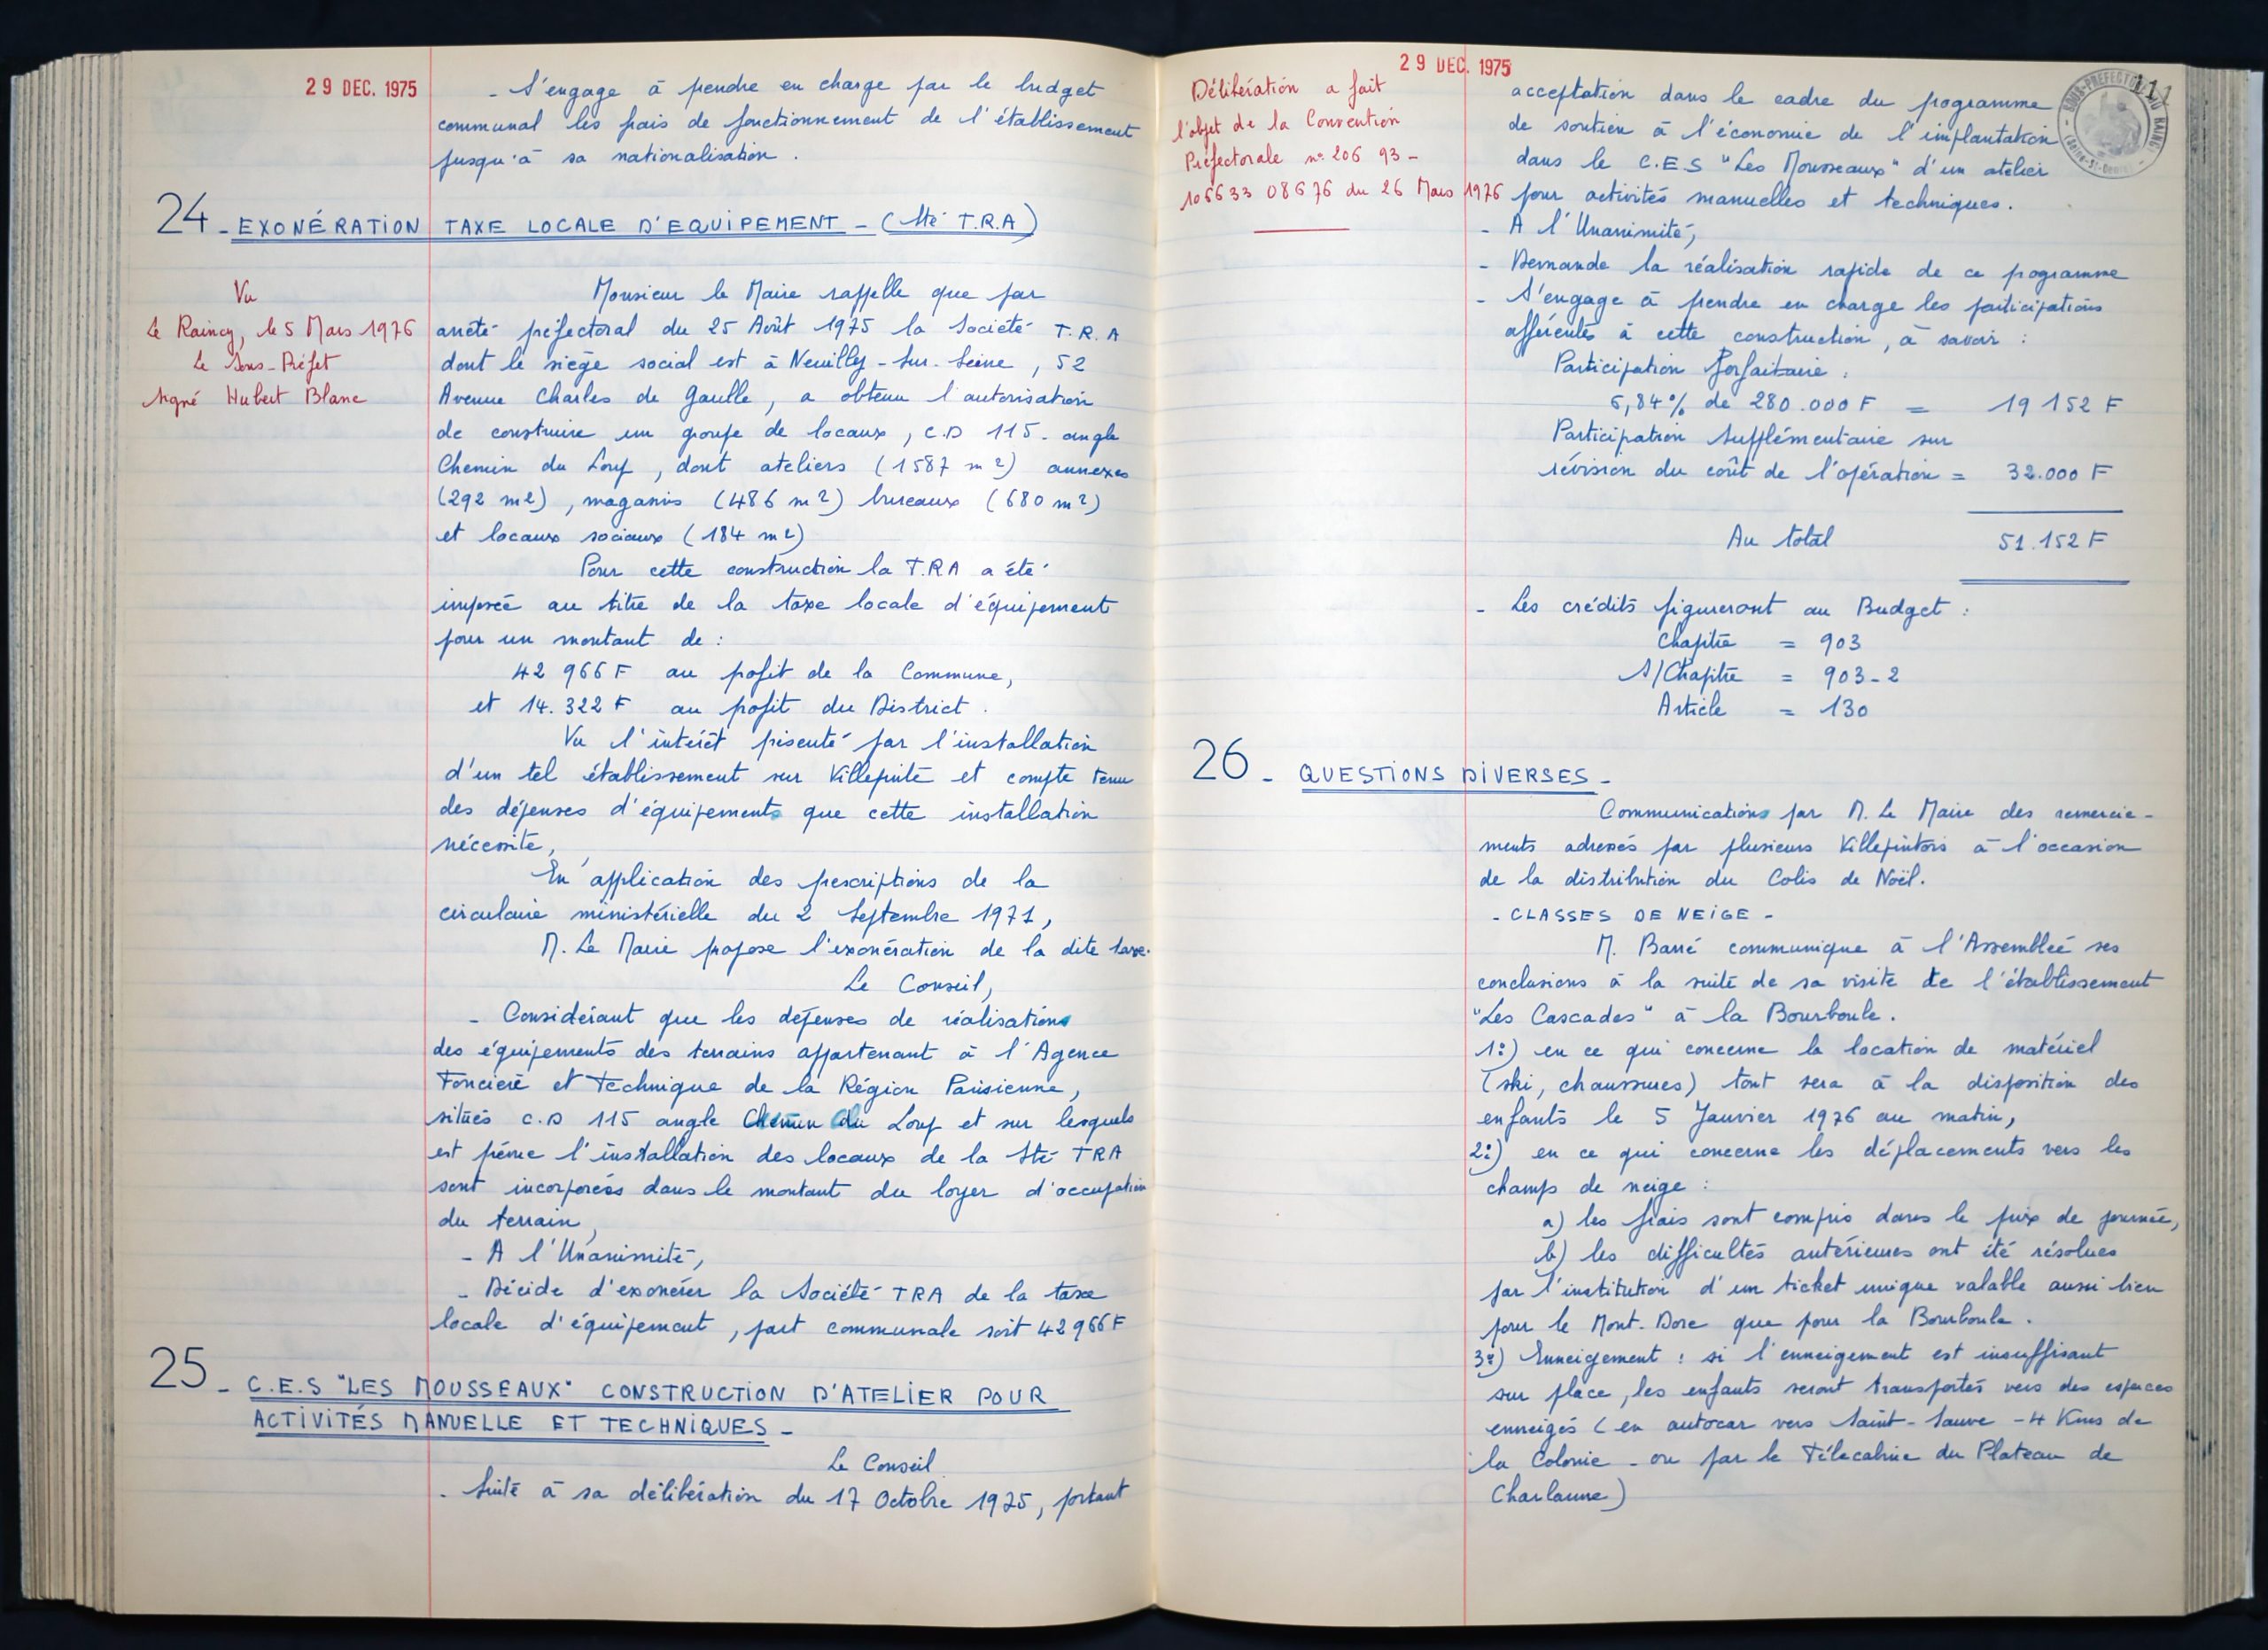 29 DEC. 1975
- S'engage à prendre en charge par le budget
communal les frais de fonctionnement de l'établissement
jusqu'à sa nationalisation.
24 - EXONÉRATION TAXE LOCALE D'EQUIPEMENT - (Sté T.R.A)
Vu
Le Raincy, le 5 Mars 1976
Le Sous-Préfet
Signé Hubert Blanc
Monsieur le Maire rappelle que par
arrêté préfectoral du 25 Août 1975 la Société T.R.A
dont le siège social est à Neuilly-Sur-Seine, 52
Avenue Charles de Gaulle, a obtenu l'autorisation
de construire un groupe de locaux, C.D 115 - angle
Chemin du Loup, dont ateliers (1587 m2) annexes
(292 m2), magasins (486 m2) bureaux (680 m2)
et locaux sociaux (184 m2)
Pour cette construction la T.R.A a été
imposée au titre de la taxe locale d'équipement
pour un montant de :
42 966 F au profit de la Commune,
et 14.322 F au profit du District.
Vu l'intérêt présenté par l'installation
d'un tel établissement sur Villepinte et compte tenu
des dépenses d'équipements que cette installation
nécessite,
En application des prescriptions de la
circulaire ministérielle du 2 Septembre 1971,
M. Le Maire propose l'exonération de la dite taxe.
Le Conseil,
- Considérant que les dépenses de réalisations
des équipements des terrains appartenant à l'Agence
Foncière et Technique de la Région Parisienne,
situés C.D 115 angle Chemin du Loup et sur lesquels
est prévue l'installation des locaux de la Sté TRA
sont incorporées dans le montant du loyer d'occupation
du terrain,
- A l'Unanimité,
- Décide d'exonérer la Société TRA de la taxe
locale d'équipement, part communale soit 42966 F
25 - C.E.S "LES MOUSSEAUX" CONSTRUCTION D'ATELIER POUR
ACTIVITÉS MANUELLE ET TECHNIQUES -
Le Conseil
- Suite à sa délibération du 17 Octobre 1975, portant
29 DEC. 1975
111
Délibération a fait
l'objet de la Convention
Préfectorale n° 206 93 -
106633 08676 du 26 Mars 1976
acceptation dans le cadre du programme
de soutien à l'économie de l'implantation
dans le C.E.S "Les Mousseaux" d'un atelier
pour activités manuelles et techniques.
- A l'Unanimité,
- Demande la réalisation rapide de ce programme
- S'engage à prendre en charge les participations
afférentes à cette construction, à savoir :
Participation forfaitaire :
6,84% de 280.000 F = 19 152 F
Participation supplémentaire sur
révision du coût de l'opération = 32.000 F
Au total 51.152 F
- Les crédits figureront au Budget :
Chapitre = 903
S/Chapitre = 903-2
Article = 130
26 - QUESTIONS DIVERSES -
Communications par M. Le Maire des remercie-
ments adressés par plusieurs Villepintois à l'occasion
de la distribution du Colis de Noël.
- CLASSES DE NEIGE -
M. Barré communique à l'Assemblée ses
conclusions à la suite de sa visite de l'établissement
"Les Cascades" à la Bourboule.
1°) en ce qui concerne la location de matériel
(ski, chaussures) tout sera à la disposition des
enfants le 5 Janvier 1976 au matin,
2°) en ce qui concerne les déplacements vers les
champs de neige :
a) les frais sont compris dans le prix de journée,
b) les difficultés antérieures ont été résolues
par l'institution d'un ticket unique valable aussi bien
pour le Mont-Dore que pour la Bourboule.
3°) Enneigement : si l'enneigement est insuffisant
sur place, les enfants seront transportés vers des espaces
enneigés (en autocar vers Saint-Sauve - 4 Kms de
la Colonie - ou par le Télécabine du Plateau de
Charlanne)